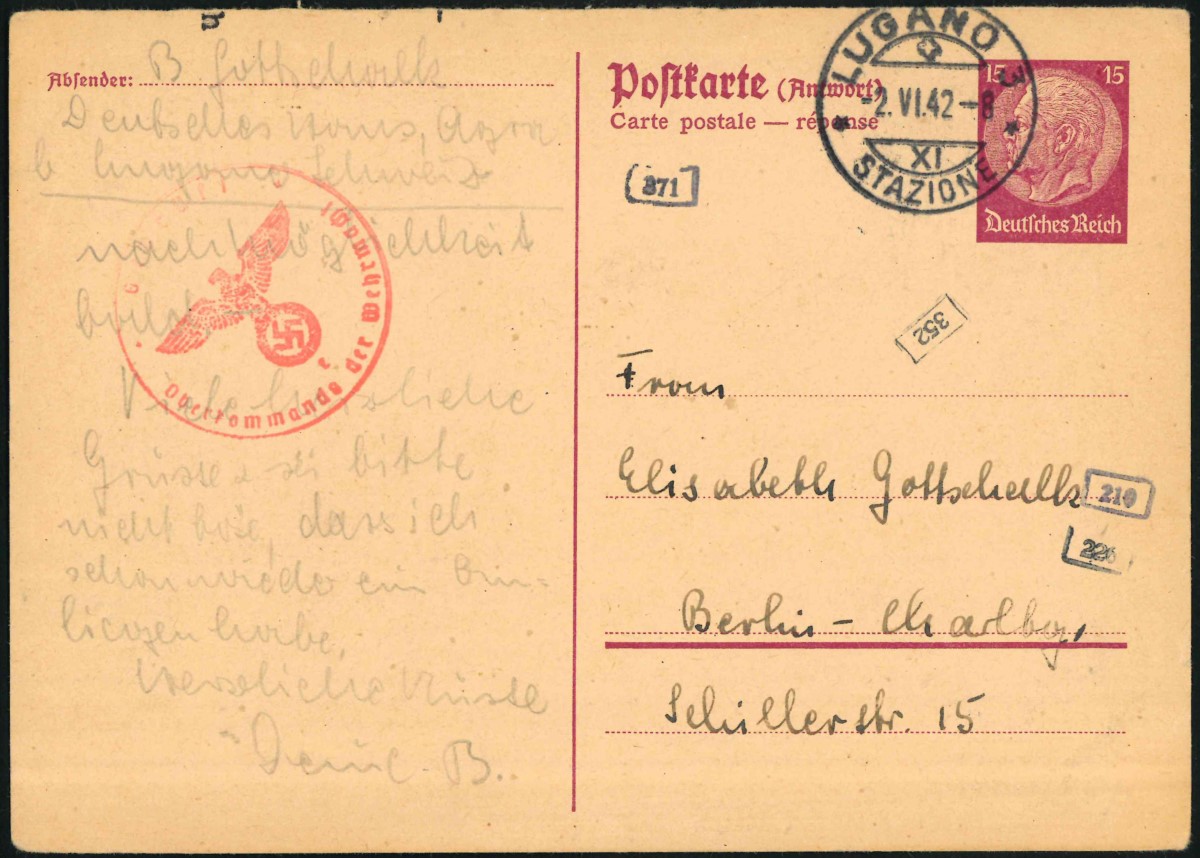 Absender: B Gottschalk
Deutsches Haus, Agra
b Lugano Schweiz
nach Möglichkeit
bald.
Viele herzliche
Grüsse u sei bitte
nicht böse, dass ich
schon wieder ein An-
liegen habe.
Herzliche Küsse
Deine B.
Geprüft
Oberkommando der Wehrmacht
e
Postkarte (Antwort)
Carte postale — réponse
LUGANO 3
-2.VI.42-8
XI
STAZIONE
15 15
Deutsches Reich
371
352
Frau
Elisabeth Gottschalk
210
226
Berlin - Charlbg,
Schillerstr. 15